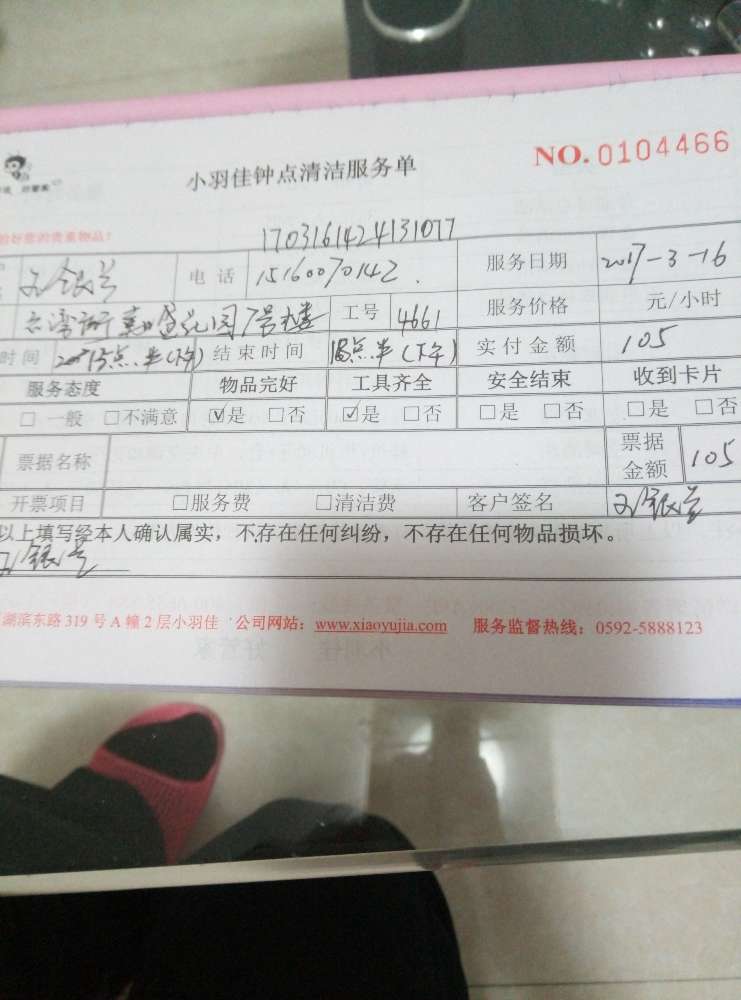 小羽佳钟点清洁服务单 NO. 0104466
好管家
的贵重物品!
1703161424131077
电 话 15160070142 服务日期 2017-3-16
花园7号楼 工号 4661 服务价格 元/小时
时间 15点半(下午) 结束时间 18点半(下午) 实付金额 105
服务态度 物品完好 工具齐全 安全结束 收到卡片
□ 一般 □不满意 ☑是 □否 ☑是 □否 □是 □否 □是 □否
票据名称 票据金额 105
开票项目 □服务费 □清洁费 客户签名
以上填写经本人确认属实，不存在任何纠纷，不存在任何物品损坏。
湖滨东路 319 号 A 幢 2 层小羽佳 公司网站：www.xiaoyujia.com 服务监督热线：0592-5888123